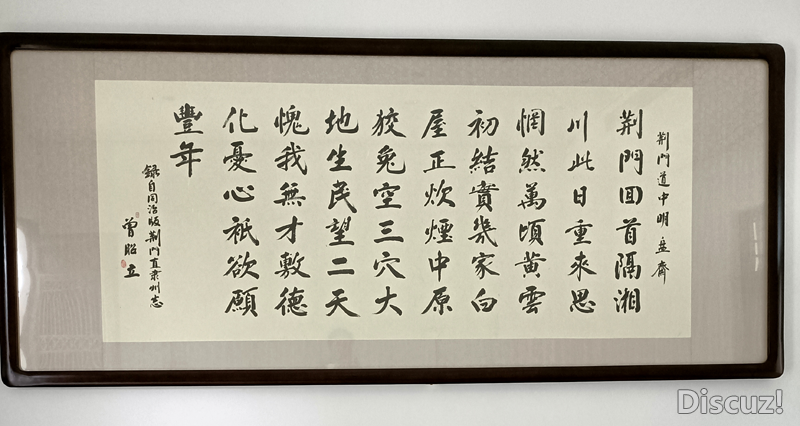 荆門道中明孟齋
荆門回首隔湘
川此日重來思
惘然萬頃黄雲
初結實幾家白
屋正炊煙中原
狡兔空三穴大
地生民望二天
愧我無才敷德
化憂心祇欲願
豐年
錄自同治版荆門直隸州志
曾昭立
Discuz!